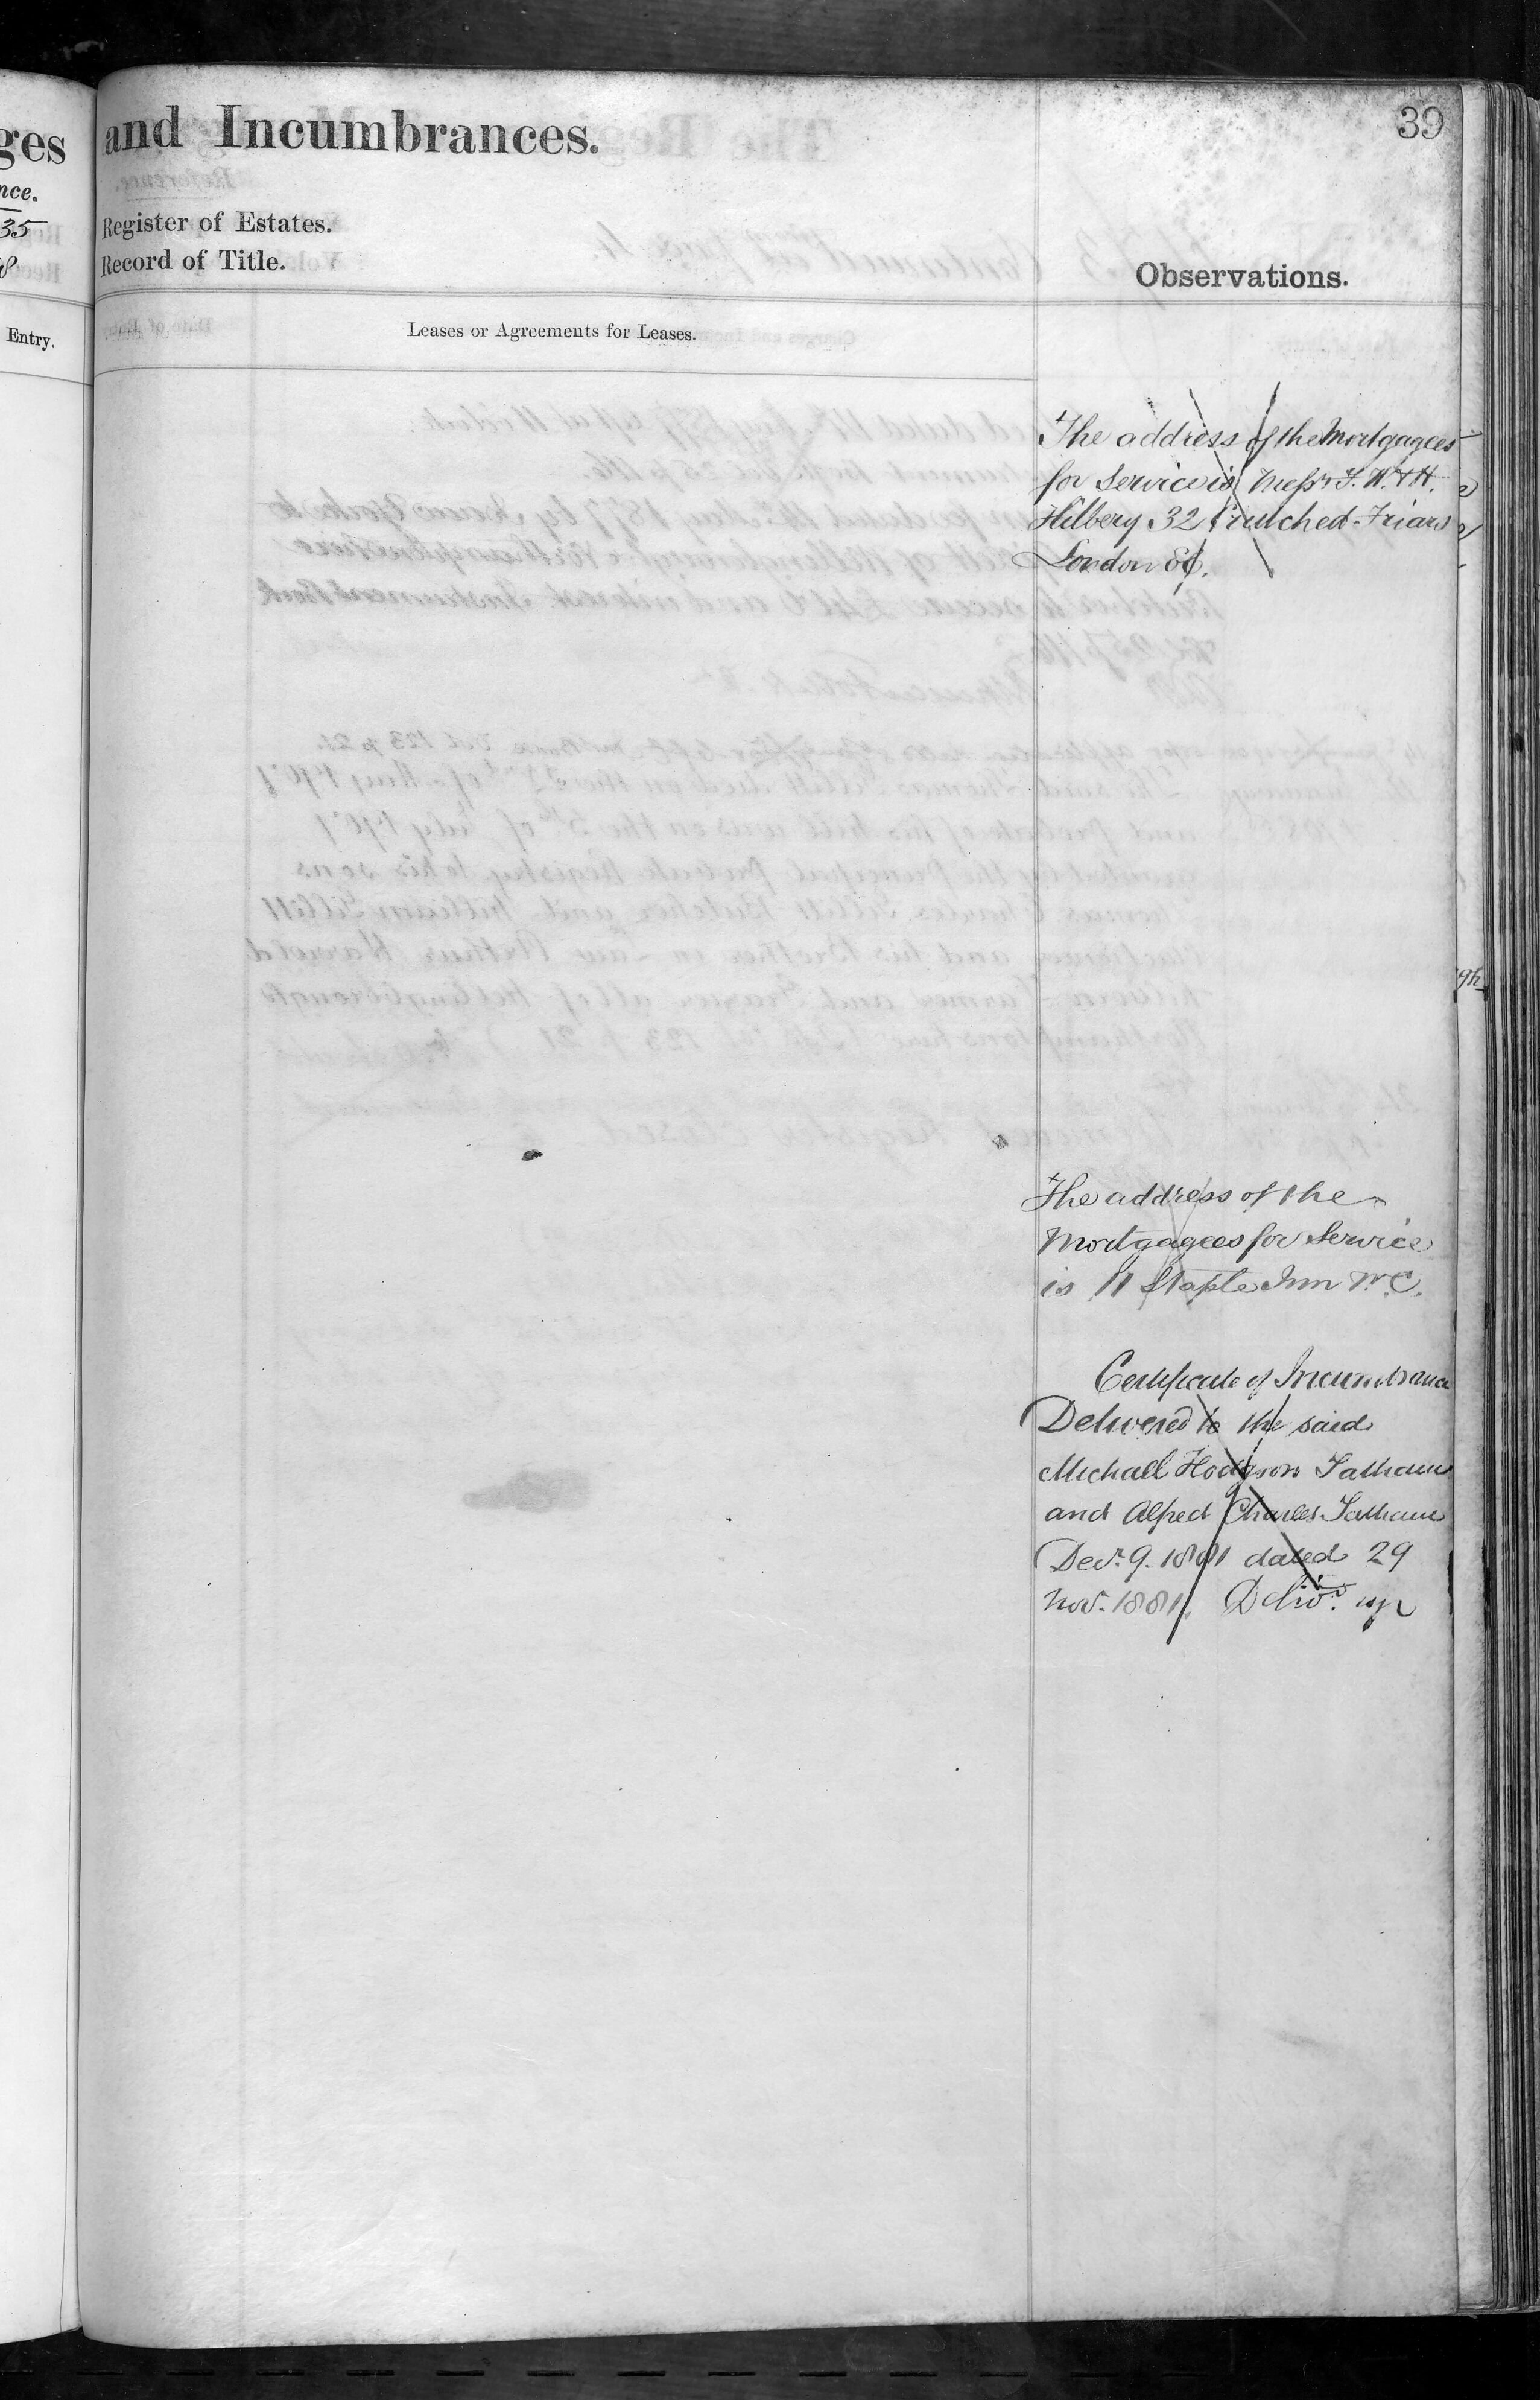 ges
nce.
35
8
Entry.
and Incumbrances.
39
Register of Estates.
Record of Title.
Observations.
Leases or Agreements for Leases.
The address of the Mortgagees
for Service is Messrs F. W. & H.
Hilbery 32 Crutched Friars
London EC.
The address of the
Mortgagees for Service
is 11 Staple Inn W.C.
Certificate of Incumbrance
Delivered to the said
Michael Hodgson Tatham
and Alfred Charles Tatham
Decr. 9. 1881 dated 29
Nov. 1881. Delivd. up